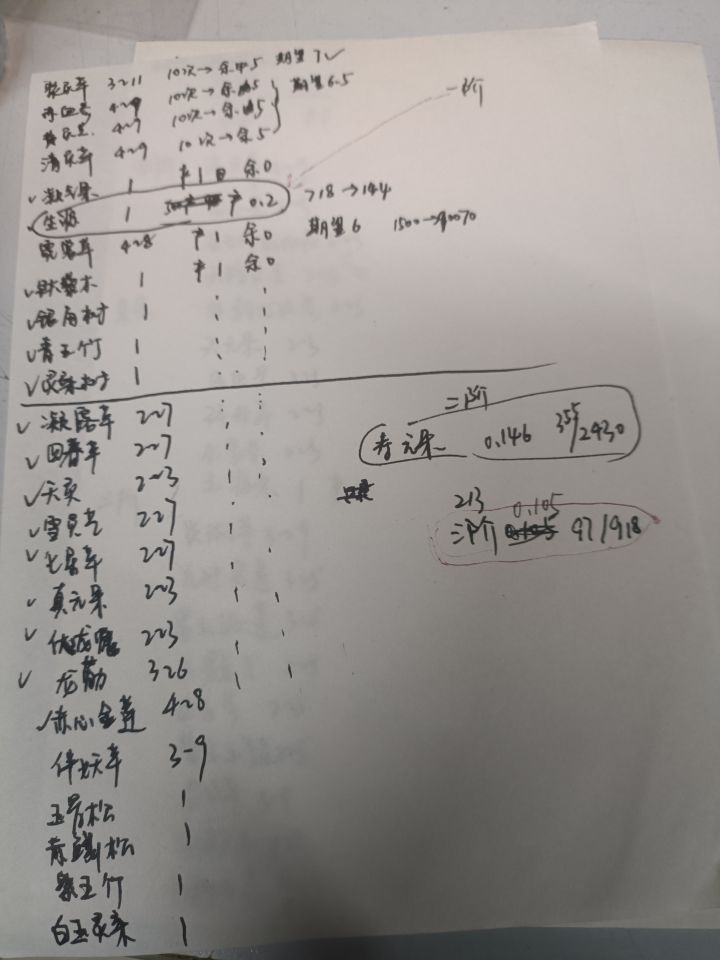 聚灵草 3~11 10次→余5 期望7✓
赤血草 4~9 10次→余5 期望6.5
黄灵芝 4~7 10次→余5
清灵草 4~9 10次→余5
一阶
✓凝气果 1 产1 余0
生源 1 产0.2 718→144
4~8 产1 余0 期望6 1500→
✓ 木 1 产1 余0
✓银角树 1
✓青玉竹 1
✓灵桑树 1
✓凝露草 2~7
✓回春草 2~7
✓天灵 2~3
✓雪灵芝 2~7
✓七星草 2~7
✓真元果 2~3
✓ 2~3
✓龙 3~6
✓赤心金莲 4~8
伴妖草 3~9
玉骨松 1
青鳞松 1
紫玉竹 1
白玉灵桑 1
二阶
寿元果 0.146 355/2430
213 0.105
三阶 97/918